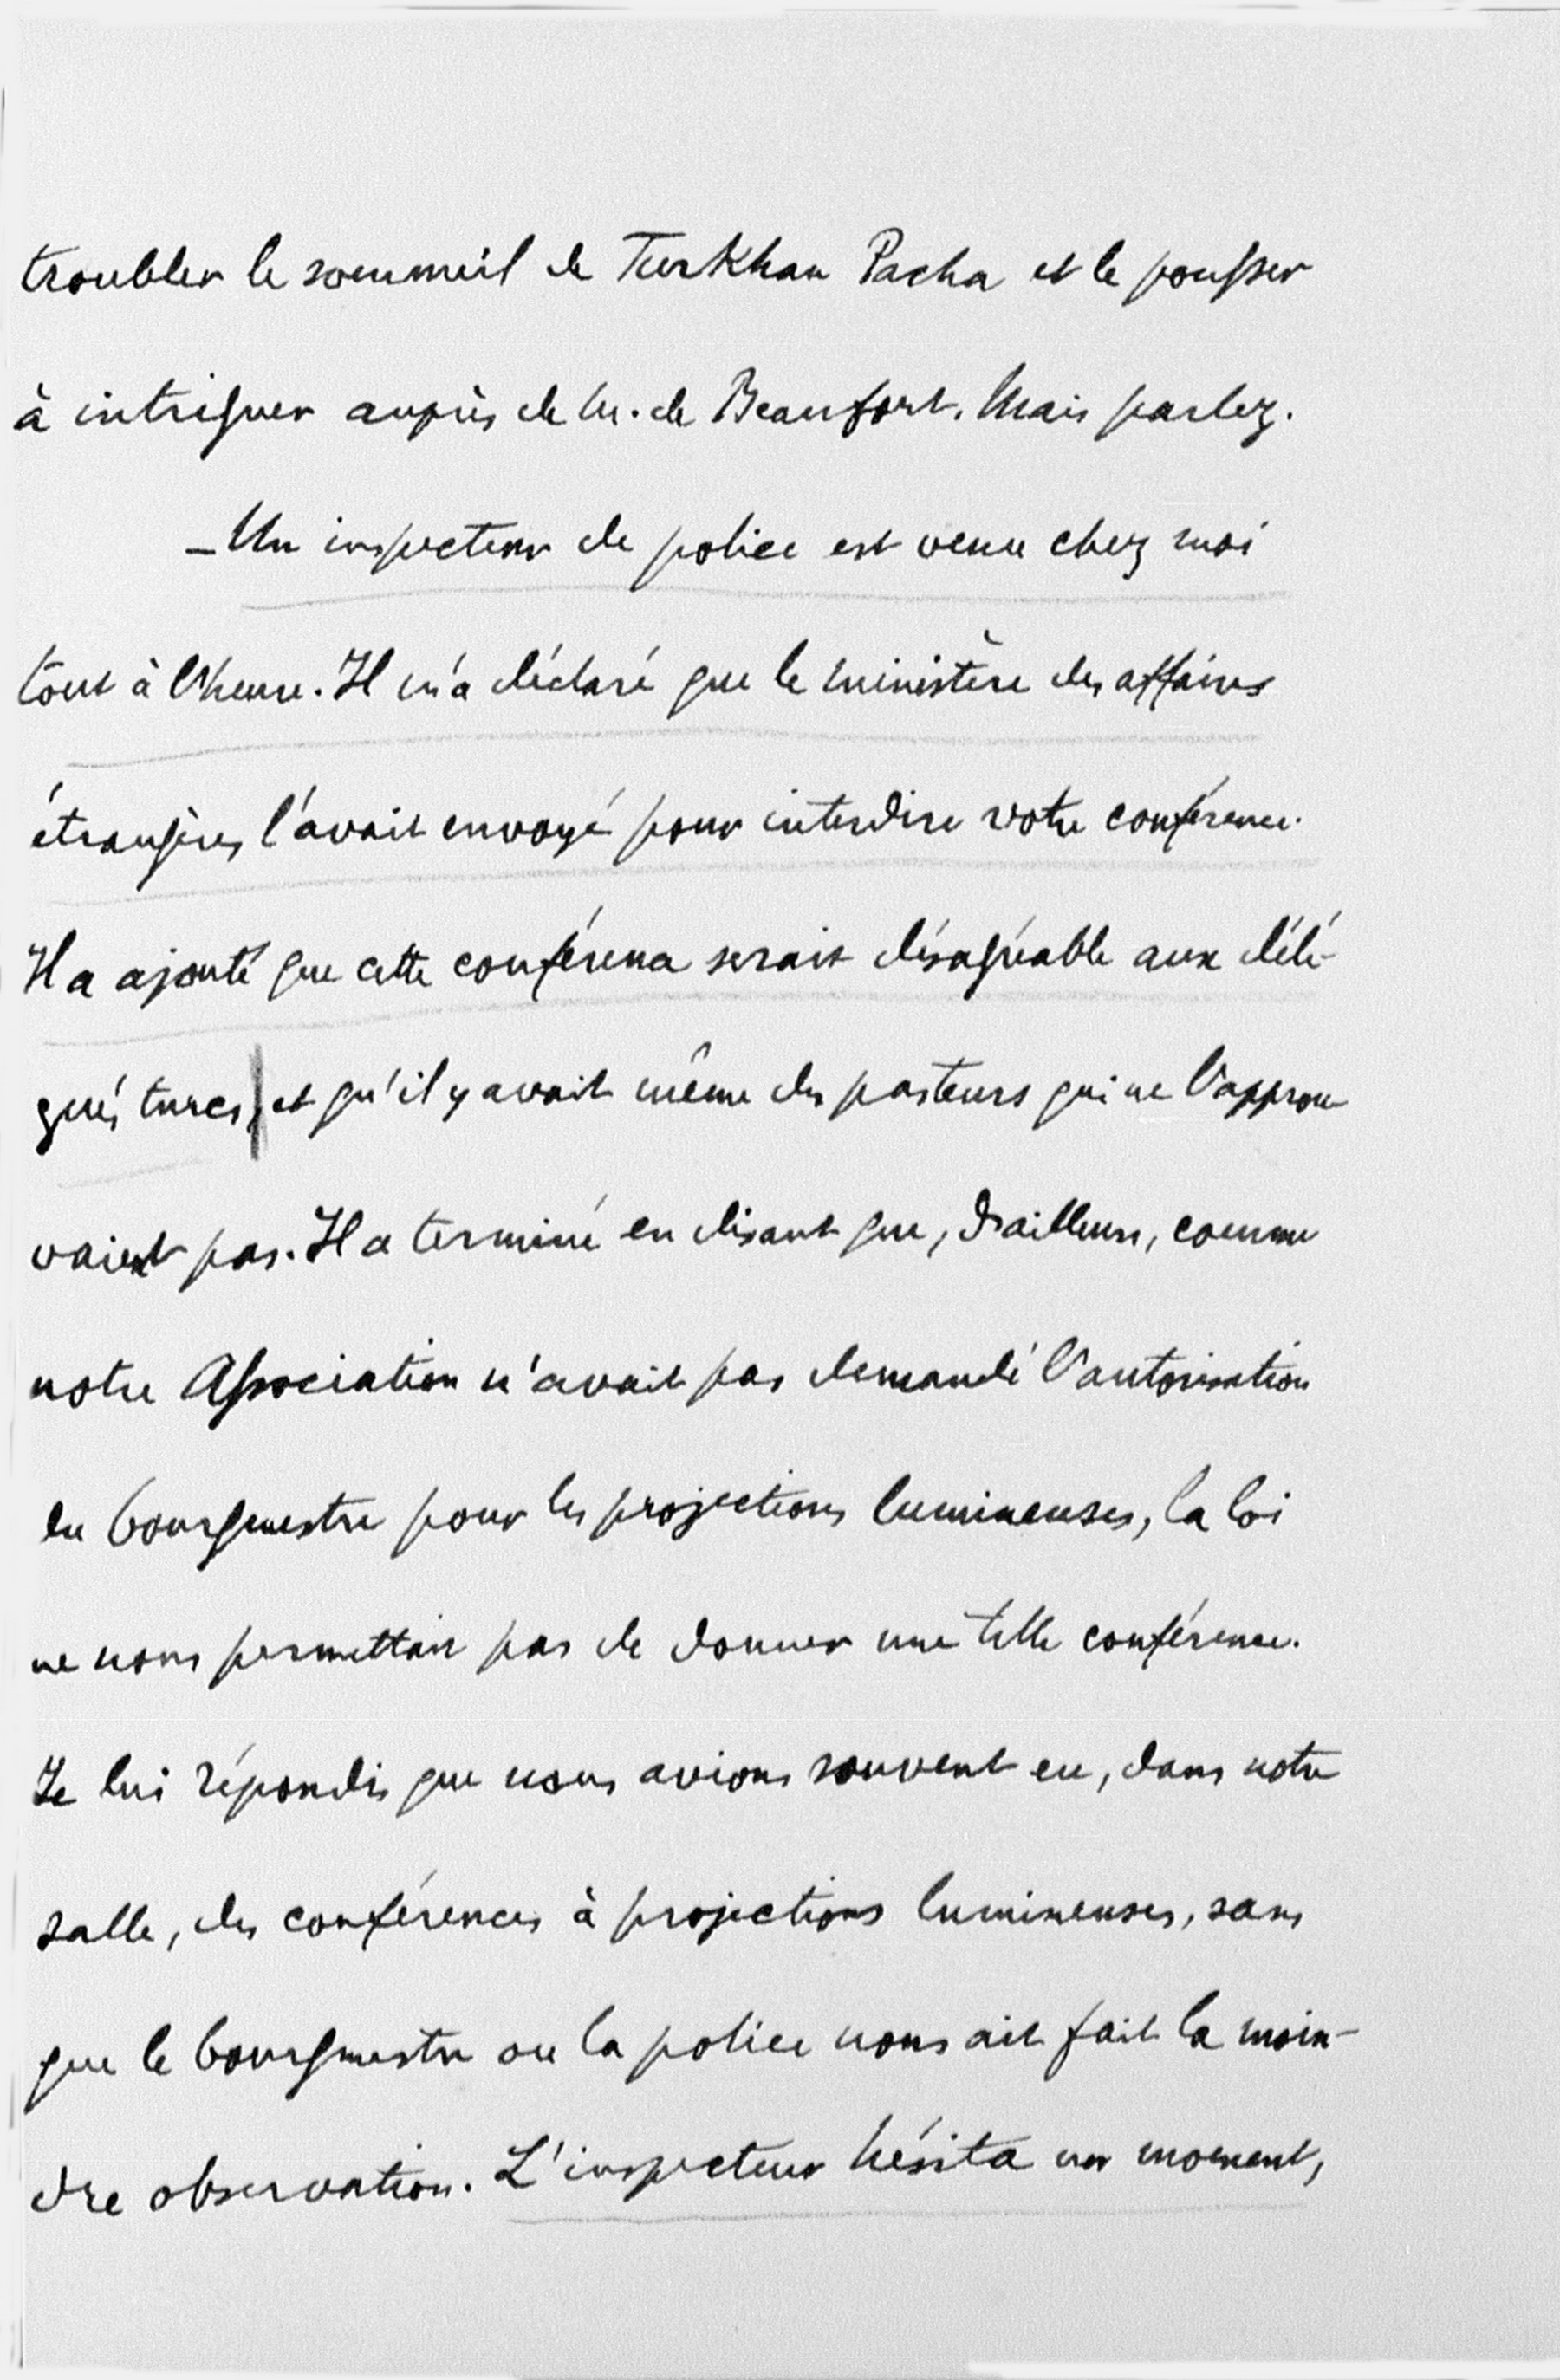 troubler le sommeil de Turkhan Pacha et le pousser
à intriguer auprès de M. de Beaufort. Mais parlez.
– Un inspecteur de police est venu chez moi
tout à l'heure. Il m'a déclaré que le ministère des affaires
étrangères l'avait envoyé pour interdire votre conférence.
Il a ajouté que cette conférence serait désagréable aux délé-
gués turcs, et qu'il y avait même des pasteurs qui ne l'approu-
vaient pas. Il a terminé en disant que, d'ailleurs, comme
notre Association n'avait pas demandé l'autorisation
du bourgmestre pour les projections lumineuses, la loi
ne nous permettait pas de donner une telle conférence.
Je lui répondis que nous avions souvent eu, dans notre
salle, des conférences à projections lumineuses, sans
que le bourgmestre ou la police nous ait fait la moin-
dre observation. L'inspecteur hésita un moment,